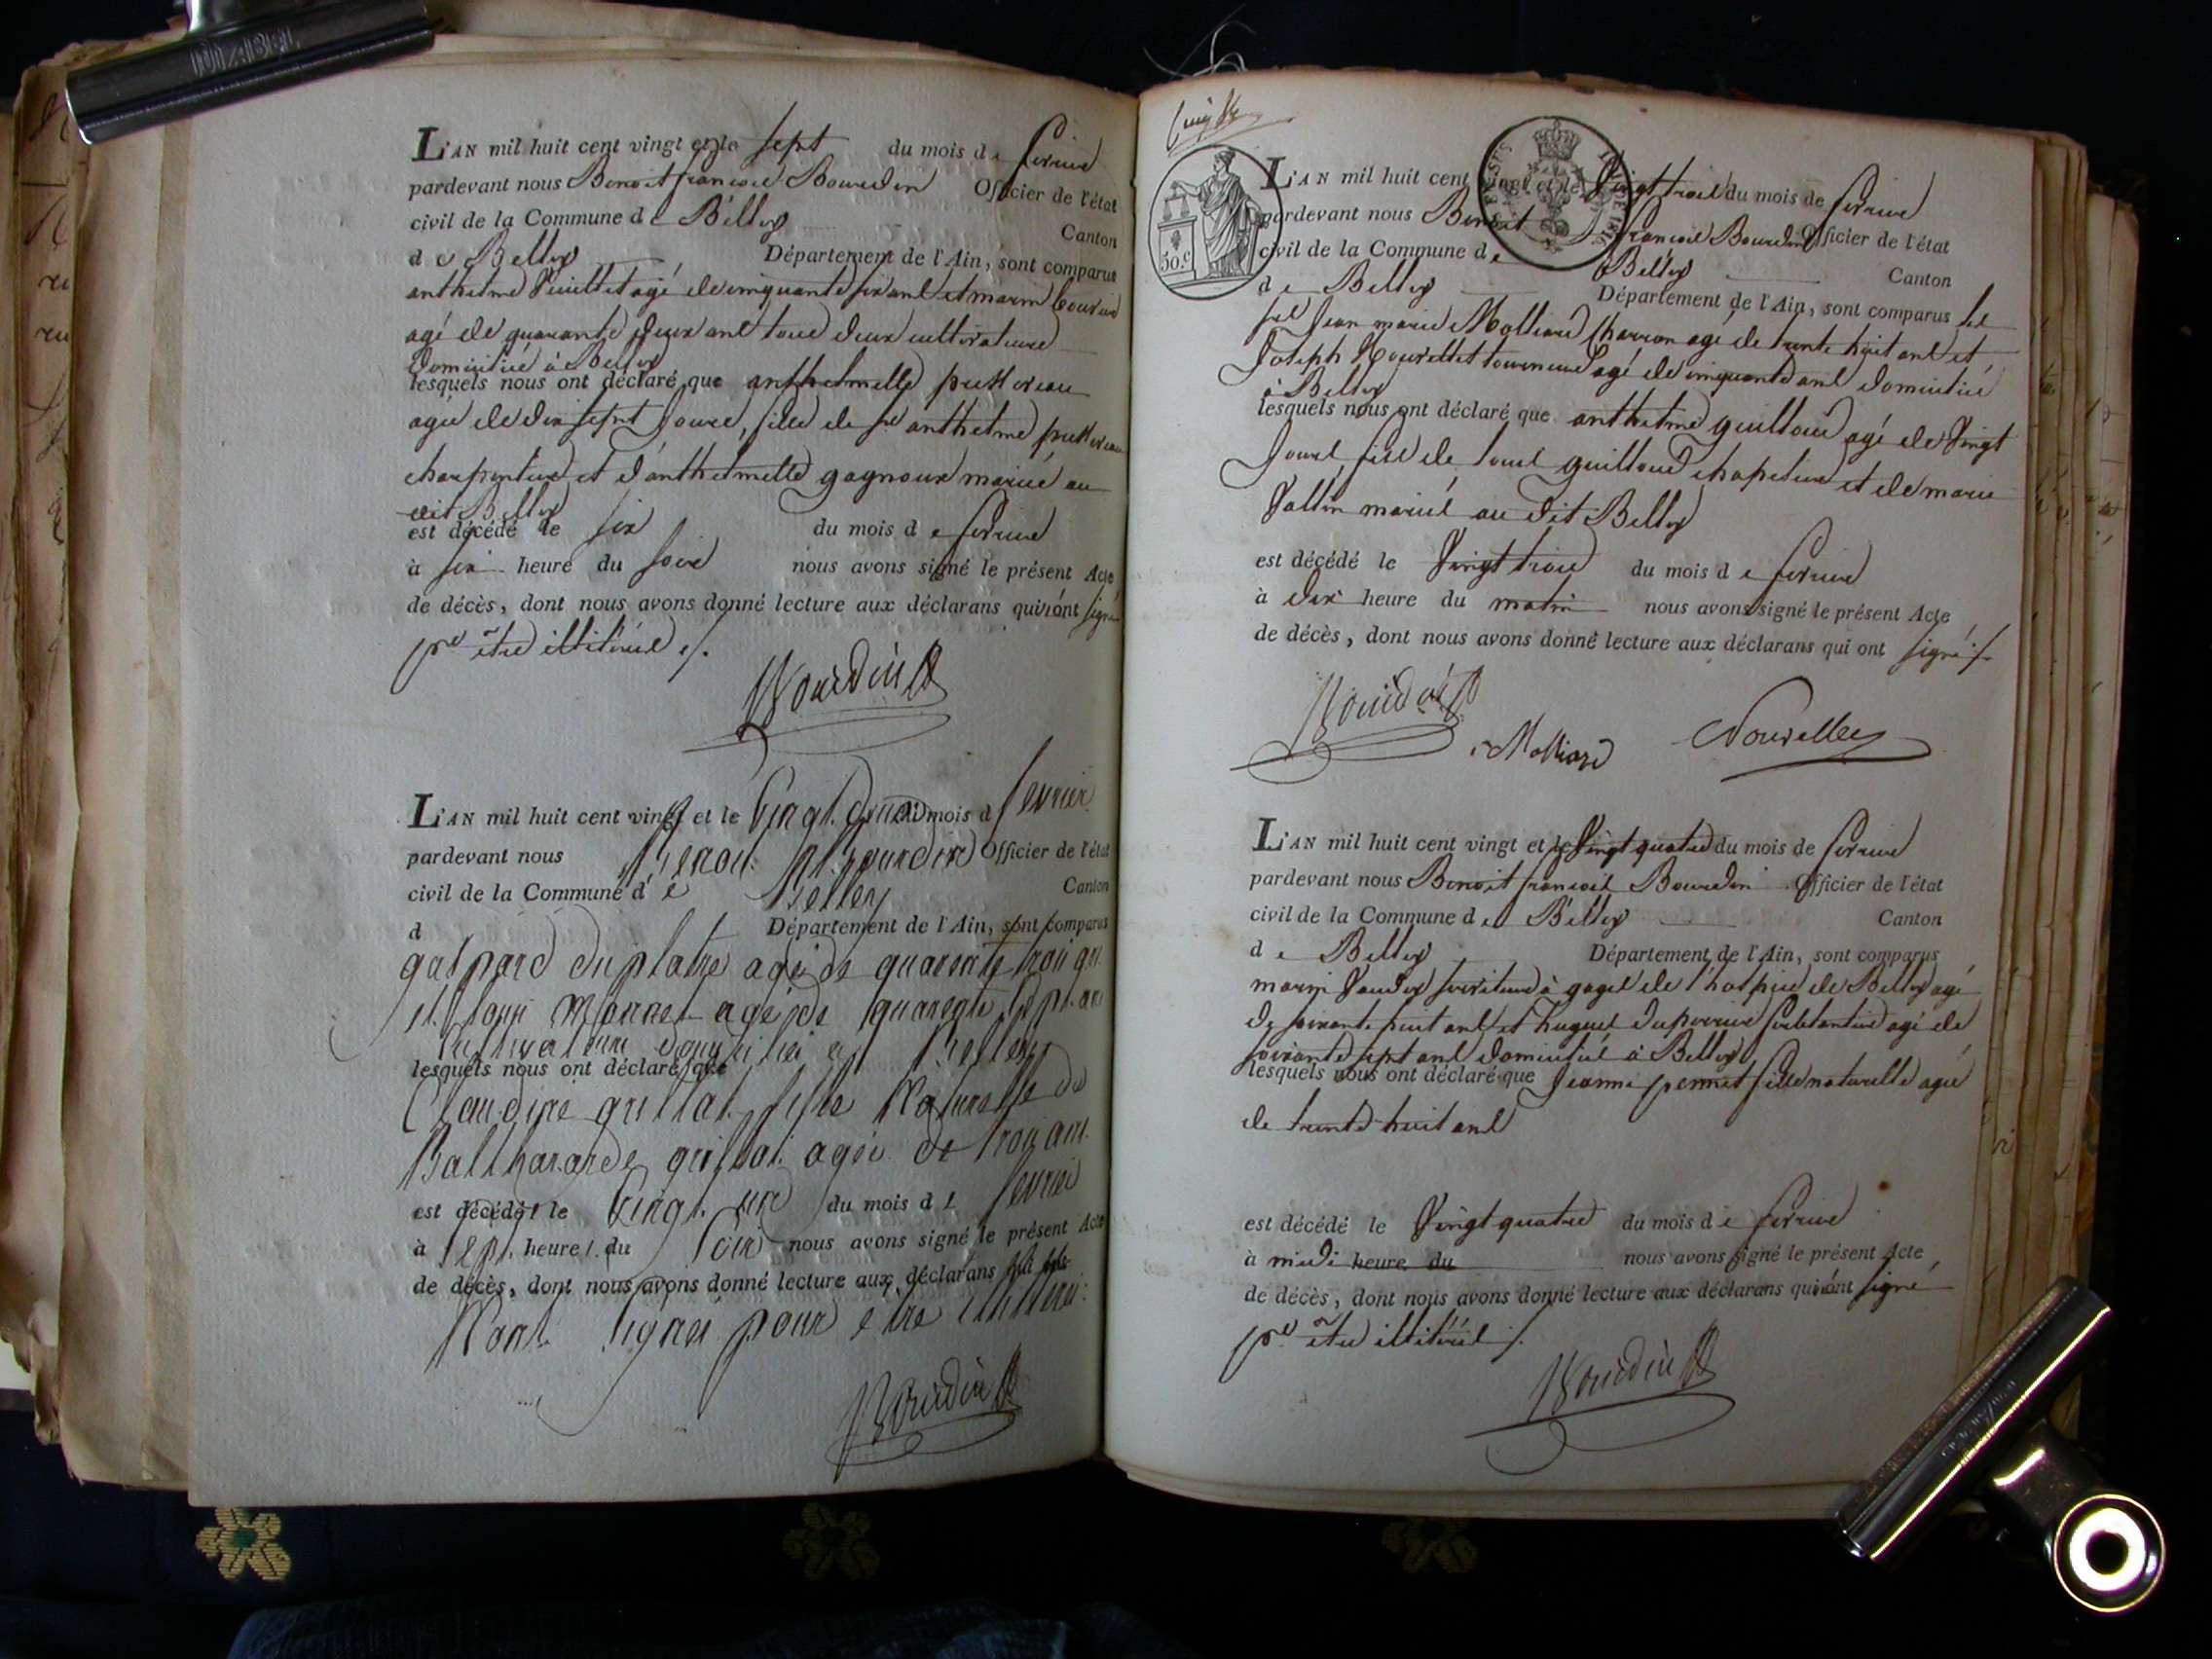 L'AN mil huit cent vingt et le sept du mois de fevrier
pardevant nous Benoit francois Bourdin Officier de l'état
civil de la Commune de Belley Canton
de Belley Département de l'Ain, sont comparus
anthelme Vuillet agé de cinquante six ans et marin
agé de quarante deux ans tous deux cultivateurs
domicilié à Belley
lesquels nous ont déclaré que anthelmette
agée de dix sept jours, fille de sr anthelme
charpentier et d'anthelmette gagnoux mariés au
dit Belley
est décédé le six du mois de fevrier
à six heure du soir nous avons signé le présent Acte
de décès, dont nous avons donné lecture aux déclarans qui n'ont signé
pr être illitérés ./.
Bourdin
L'AN mil huit cent vingt et le Vingt deux du mois d fevrier
pardevant nous Benoit f. Bourdin Officier de l'état
civil de la Commune de Belley Canton
d Département de l'Ain, sont comparus
gaspard duplatre agé de quarente trois an
et Louis Monnet agé de quarente sept ans
cultivateurs domiciliés a Belley
lesquels nous ont déclaré que
Claudine grillat fille Naturelle de
Balthazarde grillat agée de trois ans
est décédé le Vingt un du mois de fevrier
à Sept heure du Soir nous avons signé le présent Acte
de décès, dont nous avons donné lecture aux déclarans qui
N'ont signés pour etre illitérés
Bourdin
50.c
L'AN mil huit cent vingt et le Vingt trois du mois de fevrier
pardevant nous Benoit francois Bourdin Officier de l'état
civil de la Commune de Belley Canton
de Belley Département de l'Ain, sont comparus les
srs Jean marie Molliard Charron agé de trente huit ans et
Joseph Nouvellet tourneur agé de cinquante ans domicilié
à Belley
lesquels nous ont déclaré que anthelme guilloud agé de Vingt
Jours fils de Louis guilloud chapelier et de marie
Vallin mariés au dit Belley
est décédé le Vingt trois du mois de fevrier
à dix heure du matin nous avons signé le présent Acte
de décès, dont nous avons donné lecture aux déclarans qui ont signé ./.
Bourdin
Molliard Nouvellet
L'AN mil huit cent vingt et le Vingt quatre du mois de fevrier
pardevant nous Benoit francois Bourdin Officier de l'état
civil de la Commune de Belley Canton
de Belley Département de l'Ain, sont comparus
marin serviteur à gages de l'hospice de Belley agé
de soixante huit ans et hugues agé de
soixante sept ans domiciliés à Belley
lesquels nous ont déclaré que Jeanne pernet fille naturelle agée
de trente huit ans
est décédé le Vingt quatre du mois de fevrier
à midi heure du nous avons signé le présent Acte
de décès, dont nous avons donné lecture aux déclarans qui n'ont signé
pr être illitérés ./.
Bourdin